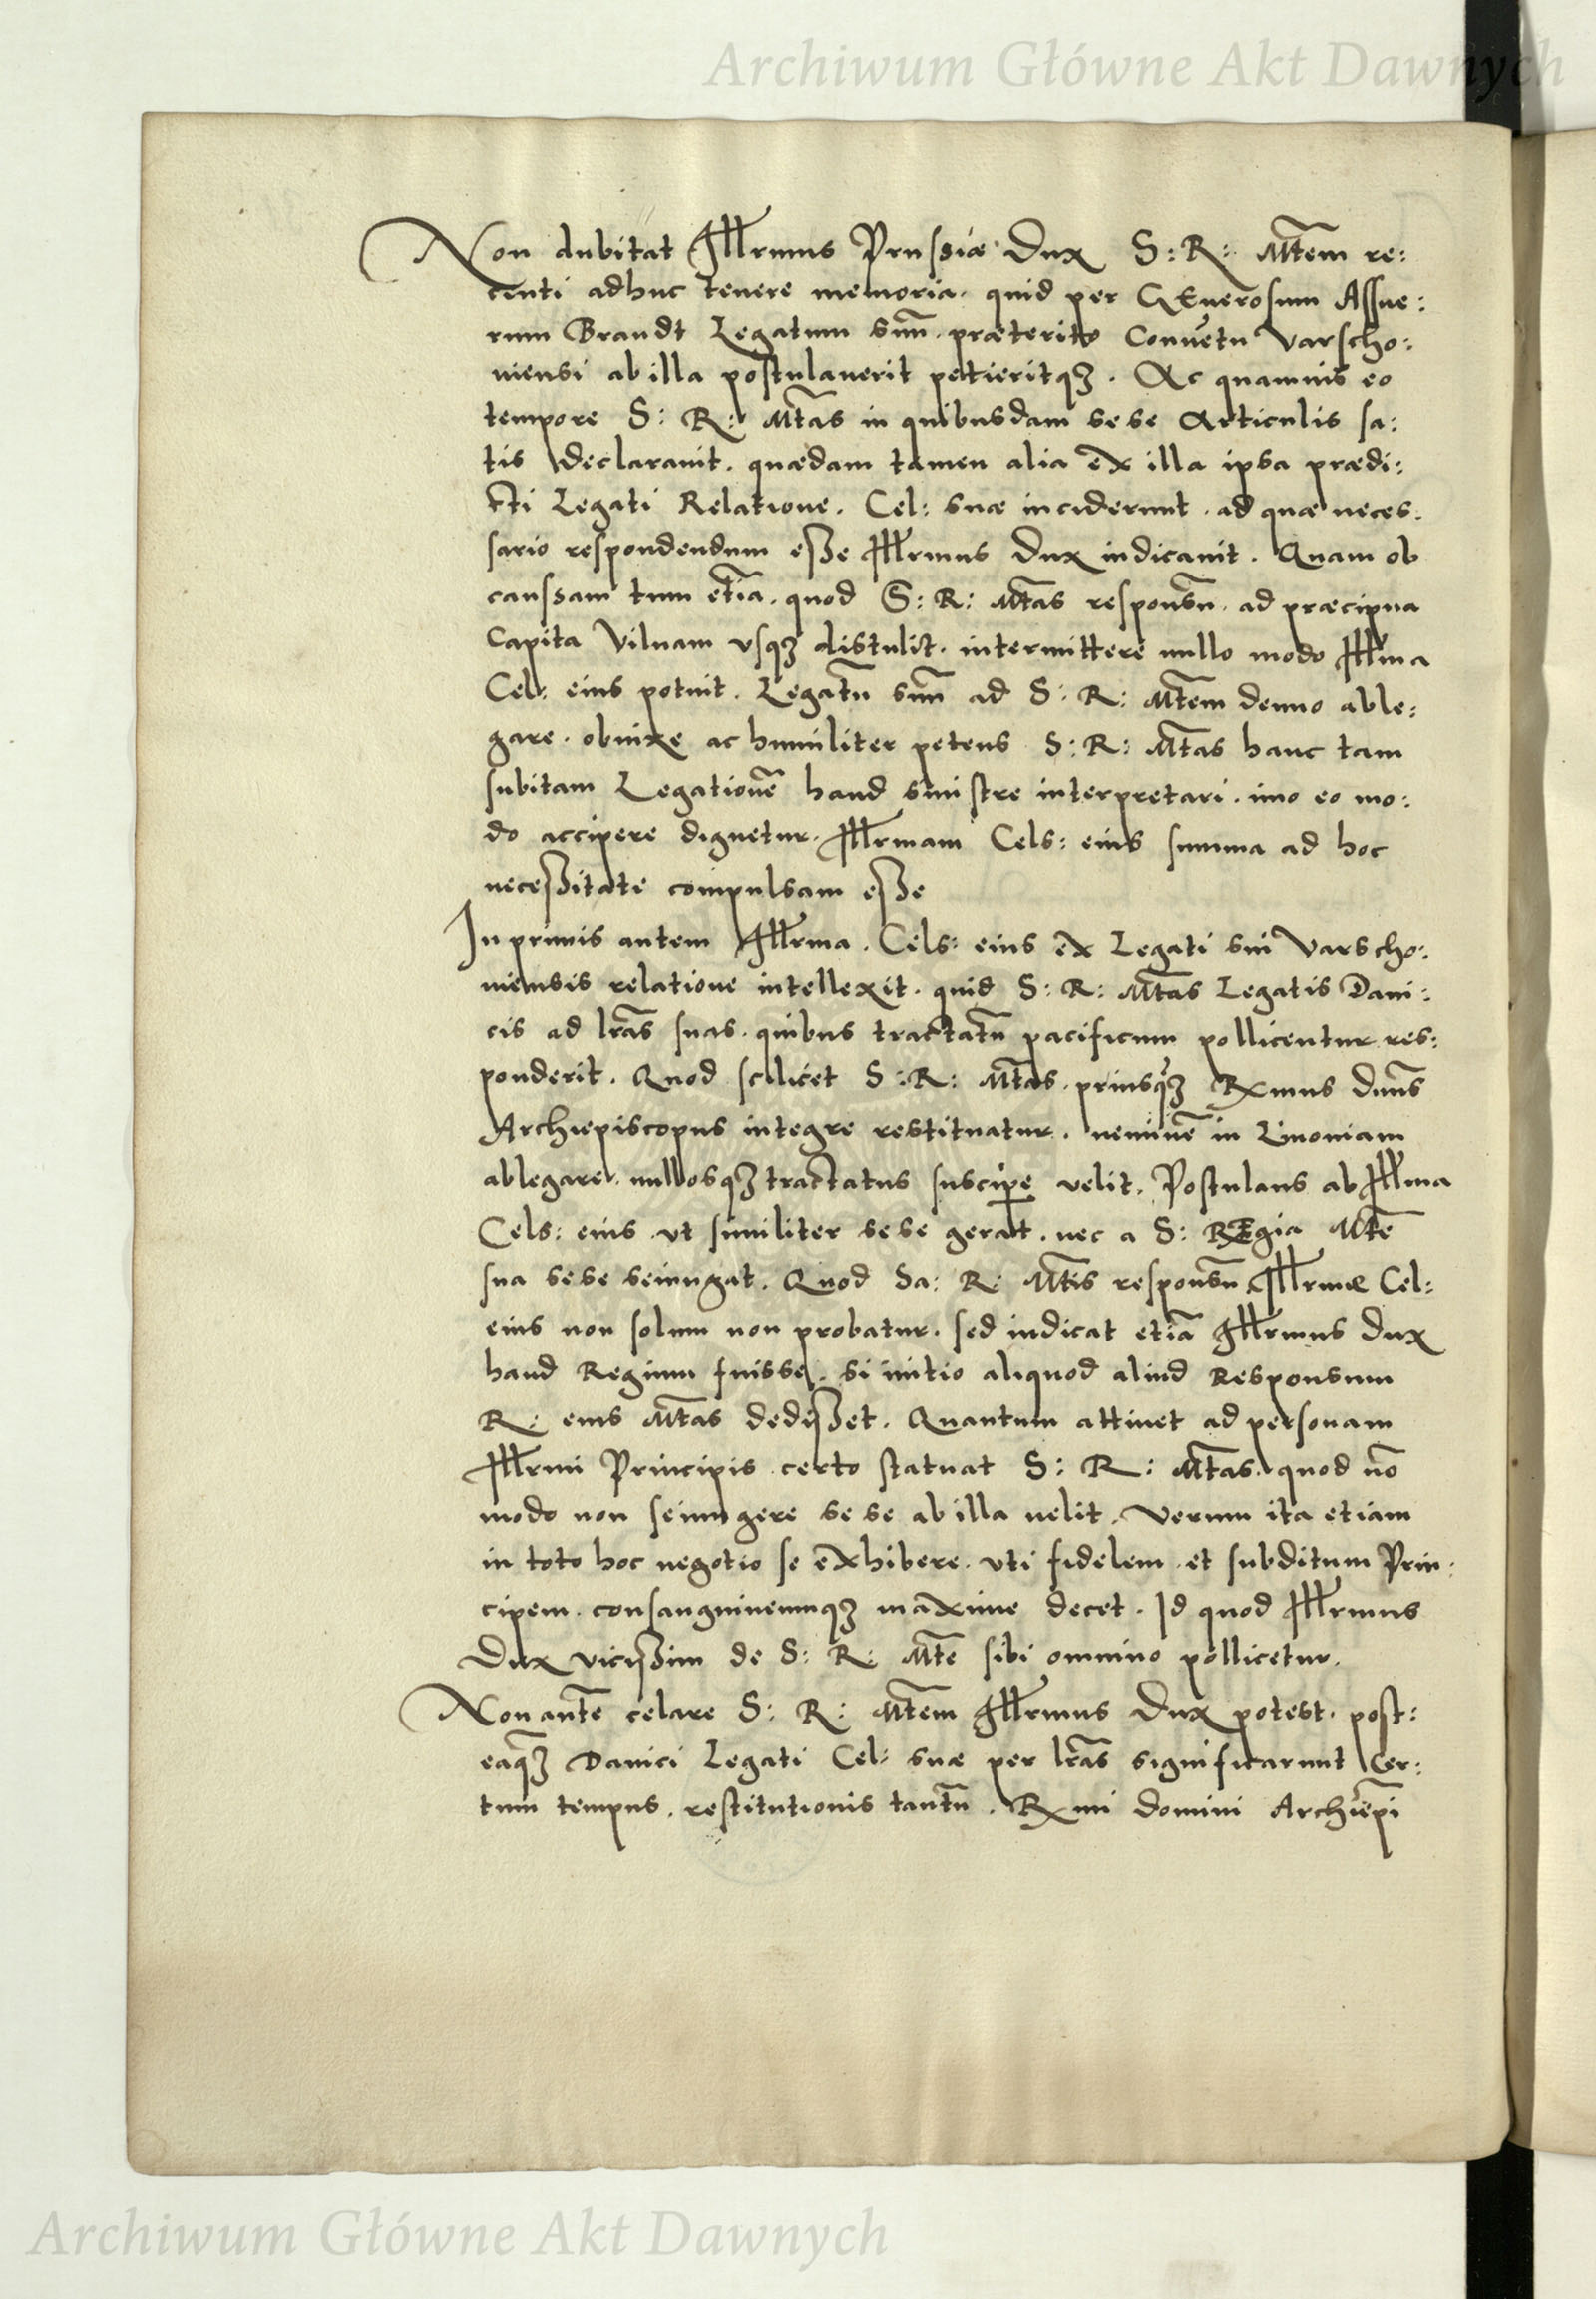 Archiwum Główne Akt Dawnych
Non dubitat Illrmus Prussiæ Dux S: R: Mtem re:
centi adhuc tenere memoria. quid per GEnerosum Assue:
rum Brandt Legatum suũ. præterito Conuẽtu Varscho:
uiensi ab illa postulauerit petieritqꝫ. Ac quamuis eo
tempore S: R: Mtas in quibusdam sese Articulis sa:
tis declarauit. quædam tamen alia ex illa ipsa prædi:
cti Legati Relatione. Cel: suæ inciderunt. ad quæ neces:
sario respondendum esse Illrmus Dux iudicauit. Quam ob
caussam tum etiã. quod S: R: Mtas responsũ. ad præcipua
Capita Vilnam vsqꝫ distulit. intermittere nullo modo Illma
Cel: eius potuit. Legatũ suũ ad S: R: Mtem denuo able:
gare. obnixe ac humiliter petens S: R: Mtas hanc tam
subitam Legationẽ haud sinistre interpretari. imo eo mo:
do accipere dignetur. Illrmam Cels: eius summa ad hoc
necessitate compulsam esse
In primis autem Illrma. Cels: eius ex Legati sui Varscho:
uiensis relatione intellexit. quid S: R: Mtas Legatis Dani:
cis ad lrãs suas. quibus tractatũ pacificum pollicentur res:
ponderit. Quod scilicet S: R: Mtas. priusqꝫ Rxmus Dnũs
Archiepiscopus integre restituatur. neminẽ in Liuoniam
ablegare. nullosqꝫ tractatus suscipe velit. Postulans ab Illma
Cels: eius vt similiter sese gerat. nec a S: REgia Mte
sua sese seiungat. Quod Sa: R: Mtis responsũ Illrmæ Cel:
eius non solum non probatur. sed iudicat etiã Illrmus Dux
haud Regium fuisse. si initio aliquod aliud Responsum
R: eius Mtas dedisset. Quantum attinet ad personam
Illrmi Principis certo statuat S: R: Mtas. quod nõ
modo non seiungere sese ab illa uelit. Verum ita etiam
in toto hoc negotio se exhibere. vti fidelem. et subditum Prin:
cipem. consanguineumqꝫ maxime decet. Id quod Illrmus
Dux vicissim de S: R: Mte sibi omnino pollicetur.
Non autẽ celare S: R: Mtem Illrmus Dux potest. post:
eaqꝫ Danici Legati Cel: suæ per lrãs significarunt Cer:
tum tempus. restitutionis tantũ. Rxmi Domini Archiẽpi
Archiwum Główne Akt Dawnych